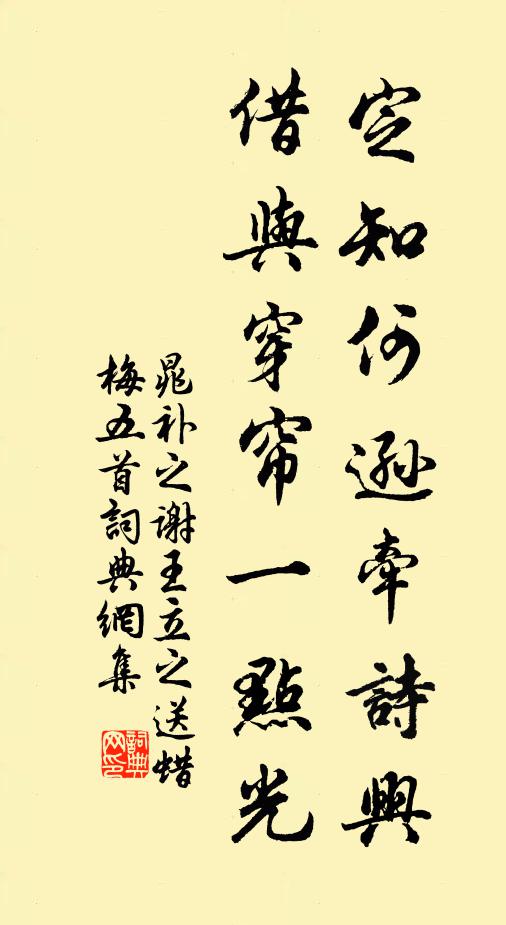 定知何遜牽詩興
借與穿帘一點光
晁補之謝王立之送蜡
梅五首詞典網集
詞典
网印